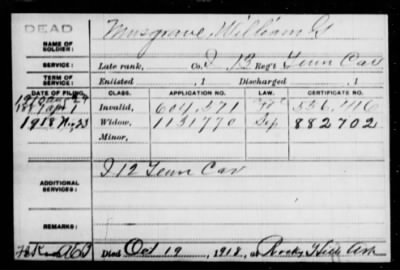 DEAD
NAME OF SOLDIER: Musgrave, William G
SERVICE: Late rank, Co. I 13 Reg't Tenn Cav
TERM OF SERVICE: Enlisted , 1 Discharged , 1
DATE OF FILING. CLASS. APPLICATION NO. LAW. CERTIFICATE NO.
Invalid, 604,271 536,416
1918 Nov 23 Widow, 1131770 882702
Minor,
ADDITIONAL SERVICES: I 12 Tenn Cav
REMARKS:
Died Oct 19, 1918, at Rocky Hill Ark